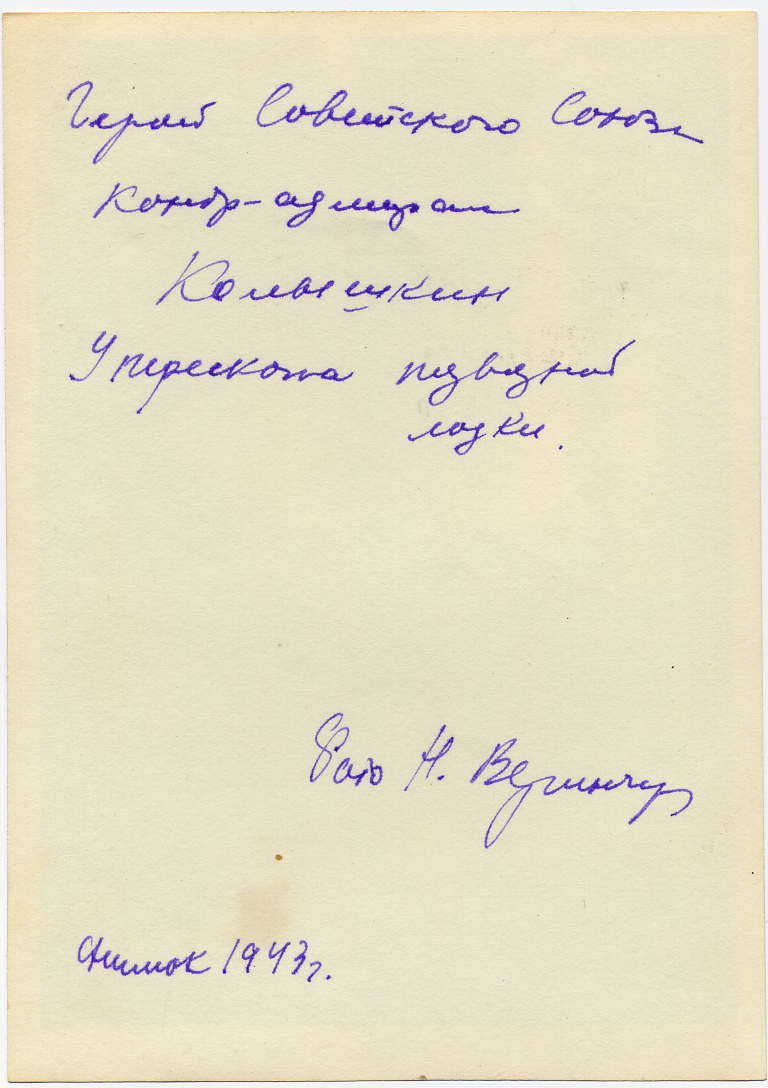 Герой Советского Союза
контр-адмирал
Колышкин
У перископа подводной
лодки.
Фото Н. Веринчук
Снимок 1943 г.